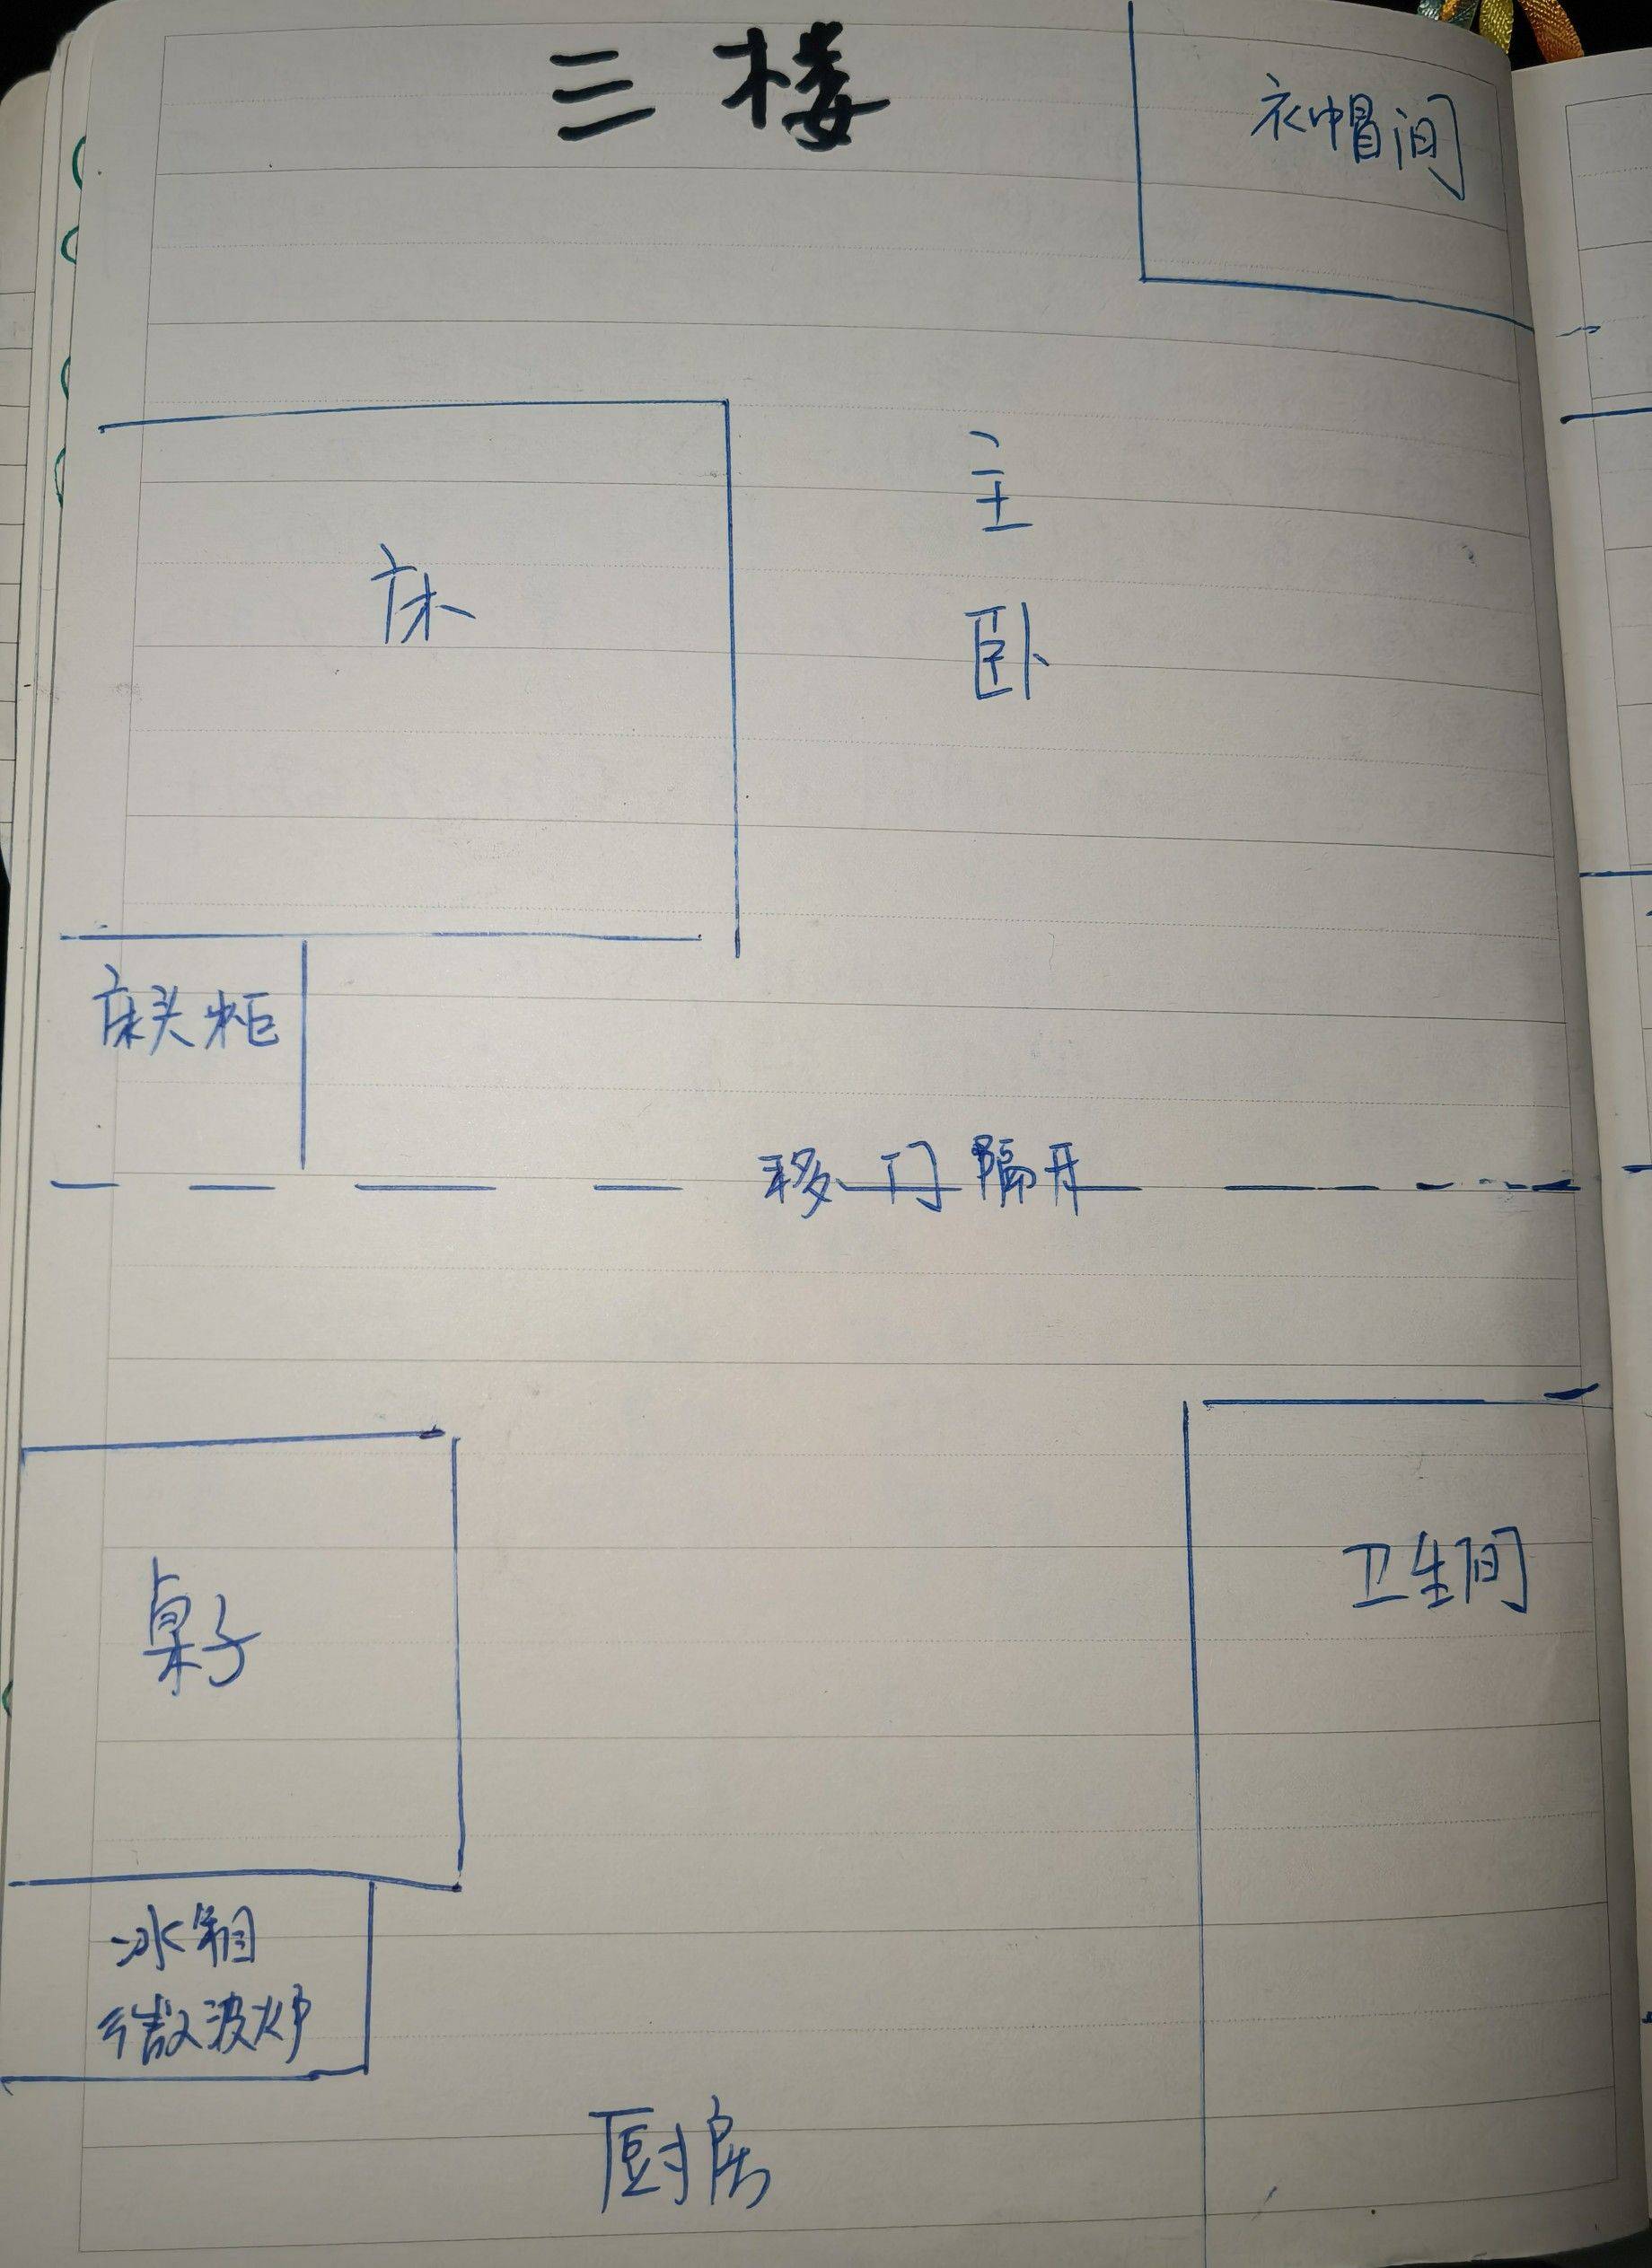 三楼
衣帽间
床
主
卧
床头柜
移门隔开
桌子
卫生间
冰箱
微波炉
厨房